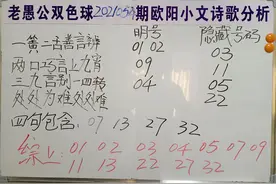 老愚公双色球2021053期欧阳小文诗歌分析
明号 隐藏号码
一簧一舌善言辩 01 02 03
两口巧言上九霄 09 11
三九言别一四转 04 05
处处为难处处难 22
四句包含:07 13 27 32
综上:01 02 03 04 05 07 09
11 13 22 27 32